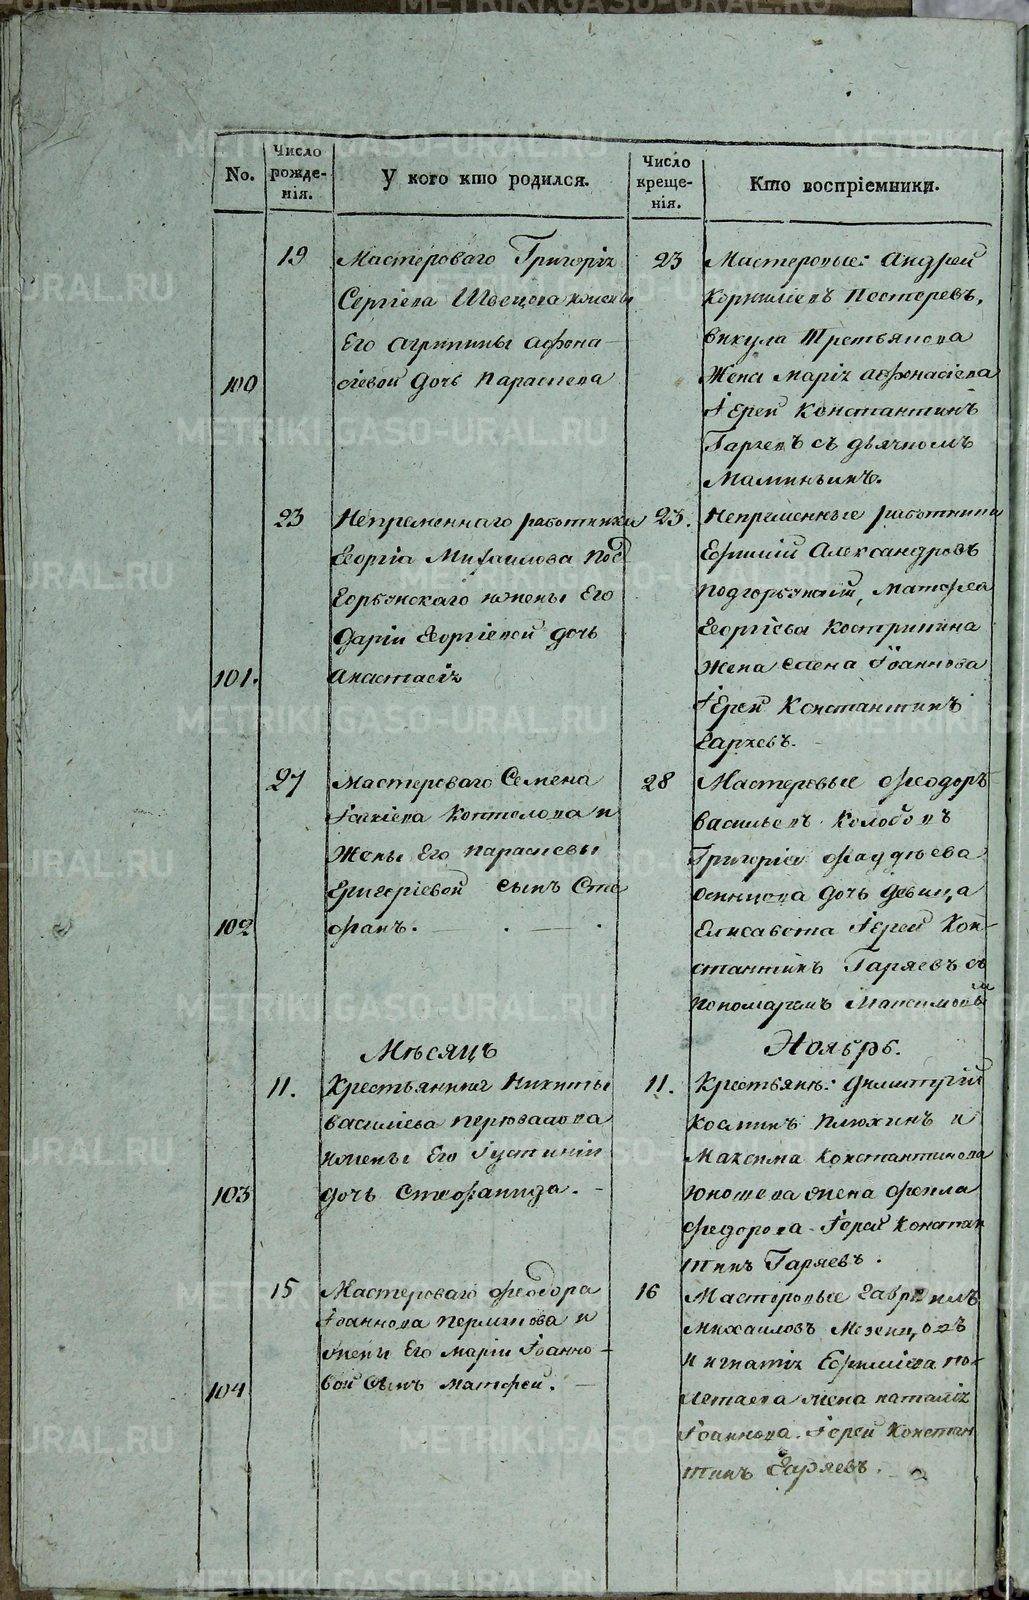 No.
Число рожде-нія.
У кого кто родился.
Число креще-нія.
Кто воспріемники.
19
Мастероваго Григорія
Сергіева Швецова ижены
Его Агрипины Афона-
сіевой дочь Параскева
100
23
Мастеровые: Андрей
Корниліевъ Постеревъ,
викула Третьякова
Жена Марія Афонасіева
Іерей Константинъ
Гаряевъ съ дьячкомъ
Маминымъ.
23
Непременнаго работника
Георгія Михаилова Под-
Горбунскаго ижены Его
Даріи Георгіевой дочь
Анастасія
101.
23.
Непременные работники
Ефимій Александровъ
Матфея
Георгіева Кострикина
Жена Елена Іоаннова
Іерей Константинъ
Гаряевъ.
27
Мастероваго Семена
Коптелова и
Жены Его Параскевы
Григоріевой сынъ Сте
фанъ.
102
28
Мастеровые Феодоръ
Васильевъ Колобовъ
Григорія Фаддеева
Осинцова дочь девица
Елисавета Іерей Кон-
стантинъ Гаряевъ съ
пономаремъ Максимовымъ
Мѣсяцъ
Ноябрь.
11.
Крестьянина Никиты
Василіева Перевалова
ижены Его Іустиніи
дочь Стефанида.
103
11.
Крестьяне:
Косминъ Плюхинъ и
Максима Константинова
Юношева жена Фекла
Федорова Іерей Констан
тинъ Гаряевъ.
15
Мастероваго Феодора
Іоаннова Пермикова и
жены Его Маріи Іоанно-
вой сынъ Матфей.
104
16
Мастеровые Гавріилъ
Михаиловъ Мезенцовъ
и Игнатія Ефиміева По-
летаева жена Наталія
Іоаннова. Іерей Констан
тинъ Гаряевъ.
METRIKI.GASO-URAL.RU